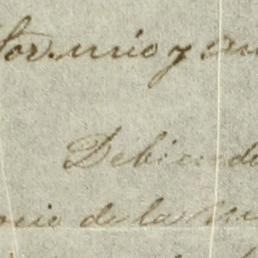 tor. mio y
Debiendo
orio de la